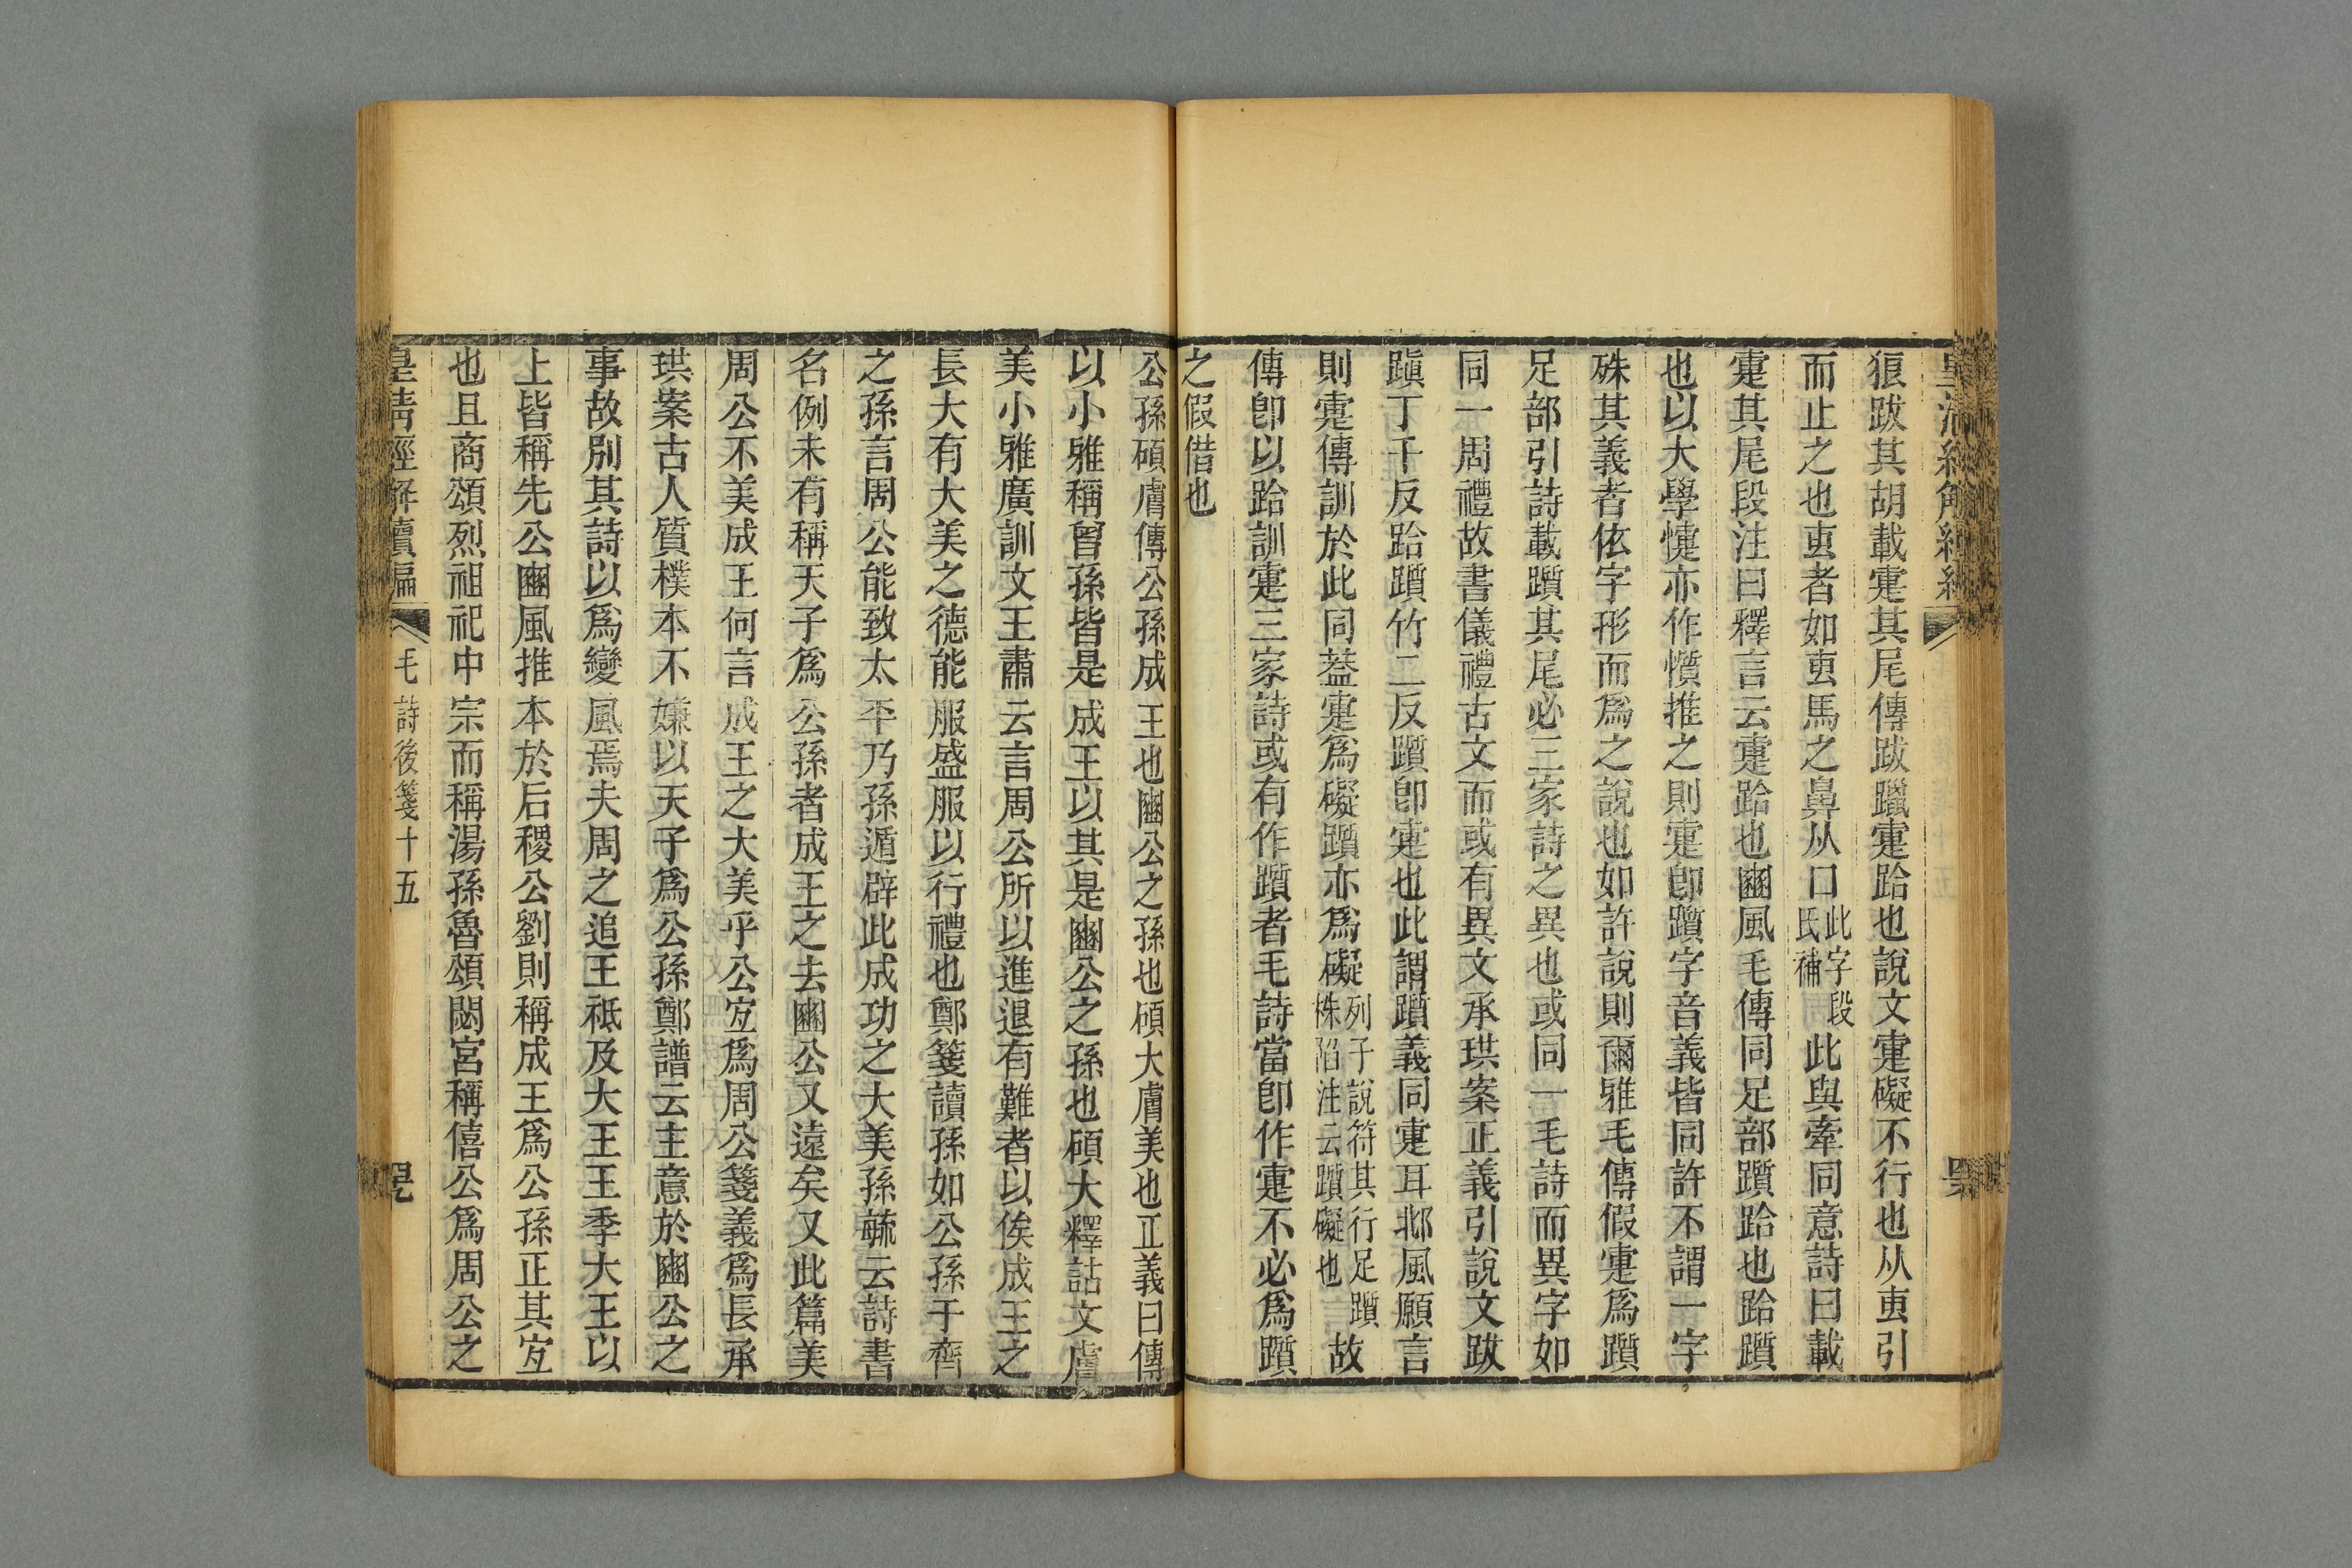 狼跋其胡載疐其尾傳跋躐疐跲也說文疐礙不行也从叀引
而止之也叀者如叀馬之鼻从口此字段氏補此與牽同意詩曰載
疐其尾段注曰釋言云疐跲也豳風毛傳同足部躓跲也跲躓
也以大學懥亦作懫推之則疐卽躓字音義皆同許不謂一字
殊其義者依字形而爲之說也如許說則爾雅毛傳假疐爲躓
足部引詩載躓其尾必三家詩之異也或同一毛詩而異字如
同一周禮故書儀禮古文而或有異文承珙案正義引說文跋
蹎丁千反跲躓竹二反躓卽疐也此謂躓義同疐耳邶風願言
則疐傳訓於此同蓋疐爲礙躓亦爲礙列子說符其行足躓株陷注云躓礙也故
傳卽以跲訓疐三家詩或有作躓者毛詩當卽作疐不必爲躓
之假借也
公孫碩膚傳公孫成王也豳公之孫也碩大膚美也正義曰傳
以小雅稱曾孫皆是成王以其是豳公之孫也碩大釋詁文膚
美小雅廣訓文王肅云言周公所以進退有難者以俟成王之
長大有大美之德能服盛服以行禮也鄭箋讀孫如公孫于齊
之孫言周公能致太平乃孫遁辟此成功之大美孫毓云詩書
名例未有稱天子爲公孫者成王之去豳公又遠矣又此篇美
周公不美成王何言成王之大美乎公宐爲周公箋義爲長承
珙案古人質樸本不嫌以天子爲公孫鄭譜云主意於豳公之
事故別其詩以爲變風焉夫周之追王祗及大王王季大王以
上皆稱先公豳風推本於后稷公劉則稱成王爲公孫正其宐
也且商頌烈祖祀中宗而稱湯孫魯頌閟宮稱僖公爲周公之
皇清經解續編 毛詩後箋十五